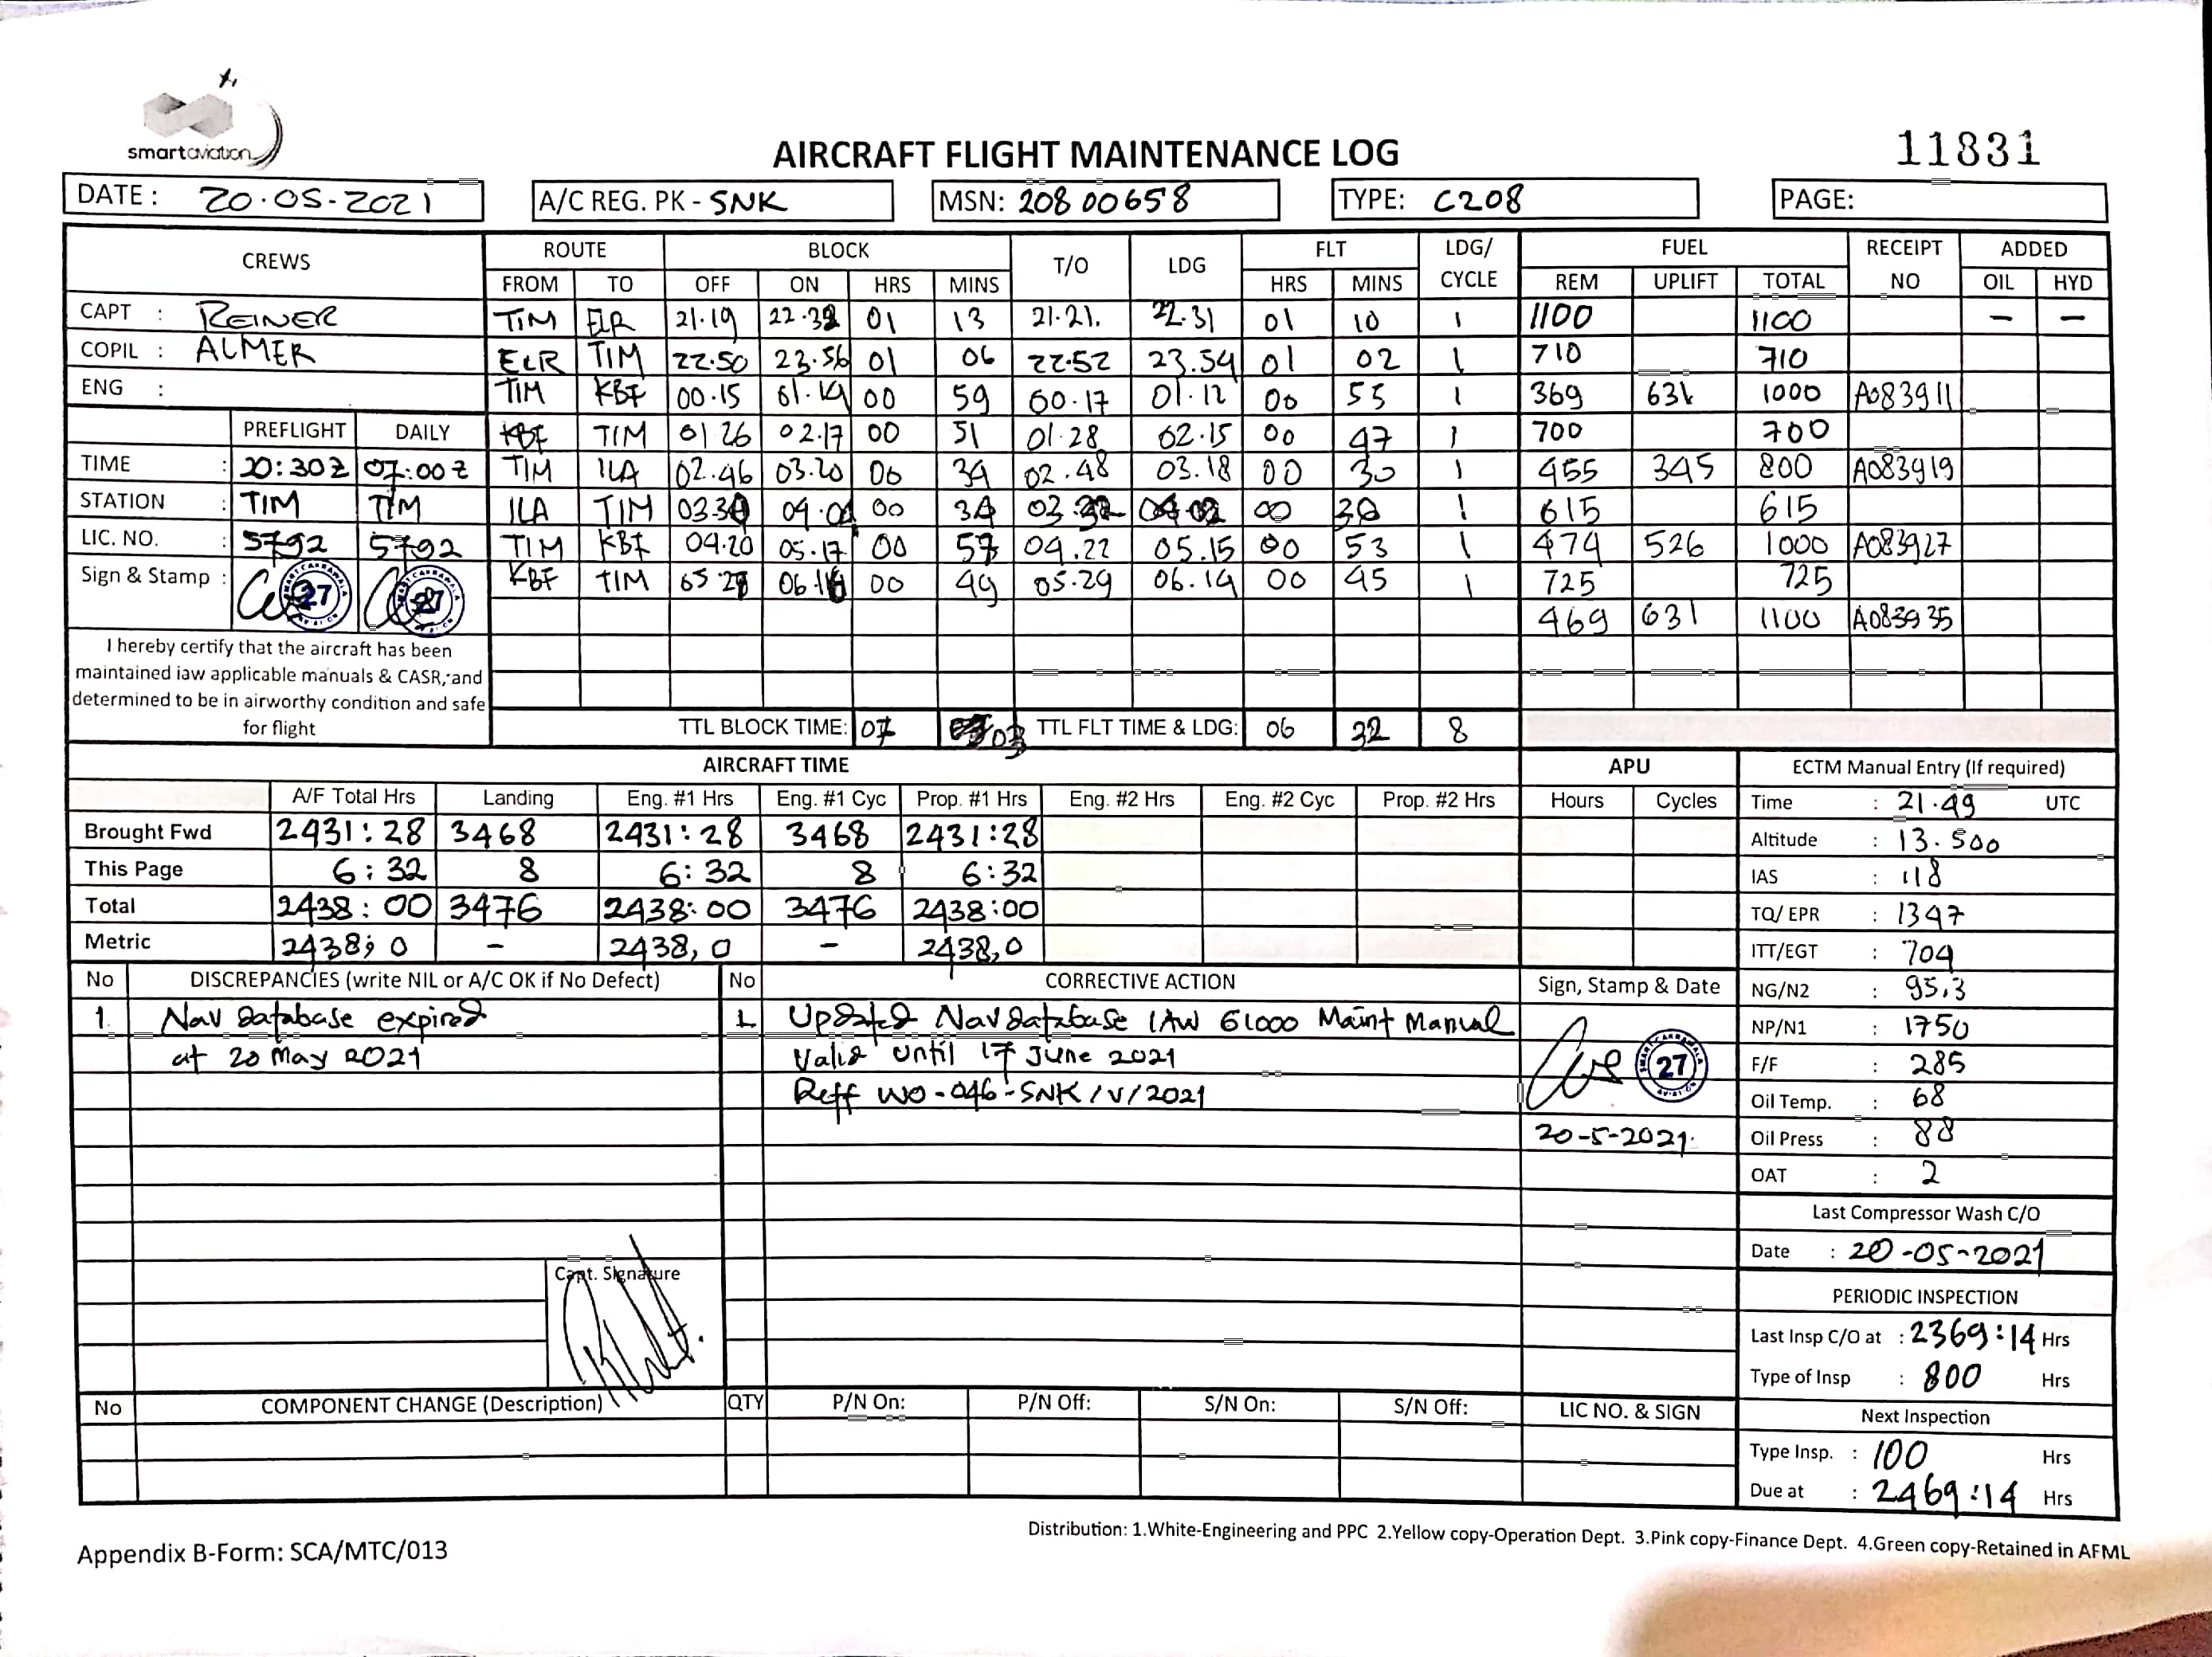 smartaviation
AIRCRAFT FLIGHT MAINTENANCE LOG
11831
DATE : 20.05-2021 A/C REG. PK - SNK MSN: 208 00658 TYPE: C208 PAGE:
CREWS ROUTE BLOCK T/O LDG FLT LDG/ CYCLE FUEL RECEIPT NO ADDED
FROM TO OFF ON HRS MINS HRS MINS REM UPLIFT TOTAL OIL HYD
CAPT : REINER TIM ELR 21.19 22.32 01 13 21.21. 22.31 01 10 1 1100 1100 — —
COPIL : ALMER ELR TIM 22.50 23.56 01 06 22.52 23.54 01 02 1 710 710
ENG : TIM KBF 00.15 01.14 00 59 00.17 01.12 00 55 1 369 631 1000 A083911
PREFLIGHT DAILY KBF TIM 01 26 02.17 00 51 01.28 02.15 00 47 1 700 700
TIME : 20:30Z 07:00Z TIM ILA 02.46 03.20 00 34 02.48 03.18 00 30 1 455 345 800 A083919
STATION : TIM TIM ILA TIM 00 34 00 30 1 615 615
LIC. NO. : 5792 5792 TIM KBF 04.20 05.17 00 57 04.22 05.15 00 53 1 474 526 1000 A083927
Sign & Stamp : 27 27 KBF TIM 05.27 06.16 00 49 05.29 06.14 00 45 1 725 725
469 631 1100 A083935
I hereby certify that the aircraft has been
maintained iaw applicable manuals & CASR, and
determined to be in airworthy condition and safe
for flight
TTL BLOCK TIME: 07 03 TTL FLT TIME & LDG: 06 32 8
AIRCRAFT TIME APU ECTM Manual Entry (If required)
A/F Total Hrs Landing Eng. #1 Hrs Eng. #1 Cyc Prop. #1 Hrs Eng. #2 Hrs Eng. #2 Cyc Prop. #2 Hrs Hours Cycles Time : 21.49 UTC
Brought Fwd 2431:28 3468 2431:28 3468 2431:28 Altitude : 13.500
This Page 6:32 8 6:32 8 6:32 IAS : 118
Total 2438:00 3476 2438:00 3476 2438:00 TQ/ EPR : 1347
Metric 2438,0 - 2438,0 - 2438,0 ITT/EGT : 704
No DISCREPANCIES (write NIL or A/C OK if No Defect) No CORRECTIVE ACTION Sign, Stamp & Date NG/N2 : 95,3
1. Nav database expired 1 Updated Nav database IAW G1000 Maint Manual NP/N1 : 1750
at 20 May 2021 Valid until 17 June 2021 27 F/F : 285
Reff WO-046-SNK/V/2021 Oil Temp. : 68
20-5-2021. Oil Press : 88
OAT : 2
Last Compressor Wash C/O
Date : 20-05-2021
Capt. Signature
PERIODIC INSPECTION
Last Insp C/O at : 2369:14 Hrs
Type of Insp : 800 Hrs
No COMPONENT CHANGE (Description) QTY P/N On: P/N Off: S/N On: S/N Off: LIC NO. & SIGN Next Inspection
Type Insp. : 100 Hrs
Due at : 2469:14 Hrs
Distribution: 1.White-Engineering and PPC 2.Yellow copy-Operation Dept. 3.Pink copy-Finance Dept. 4.Green copy-Retained in AFML
Appendix B-Form: SCA/MTC/013